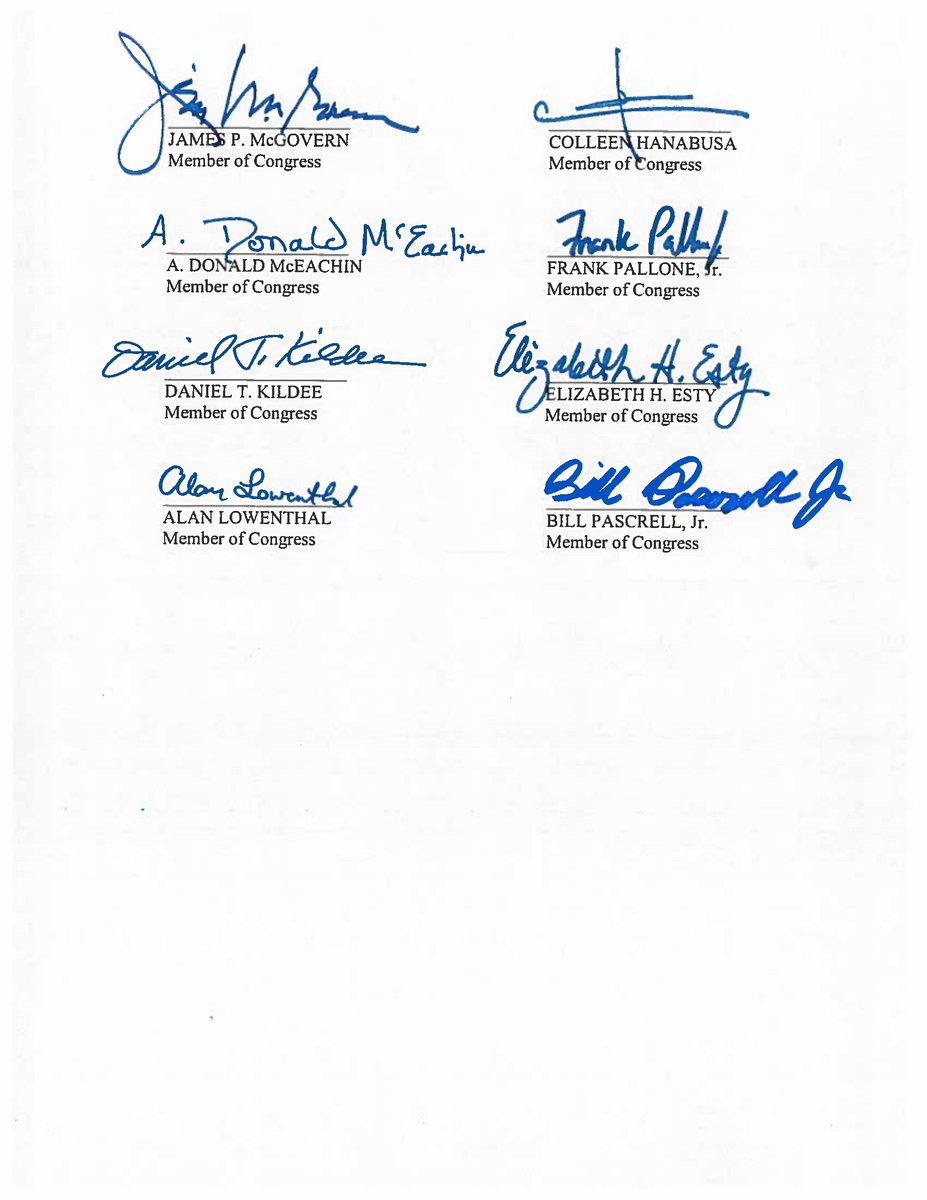 Jim McGovern
JAMES P. McGOVERN
Member of Congress
COLLEEN HANABUSA
Member of Congress
A. Donald McEachin
A. DONALD McEACHIN
Member of Congress
Frank Pallone Jr
FRANK PALLONE, Jr.
Member of Congress
Daniel T. Kildee
DANIEL T. KILDEE
Member of Congress
Elizabeth H. Esty
ELIZABETH H. ESTY
Member of Congress
Alan Lowenthal
ALAN LOWENTHAL
Member of Congress
Bill Pascrell Jr
BILL PASCRELL, Jr.
Member of Congress